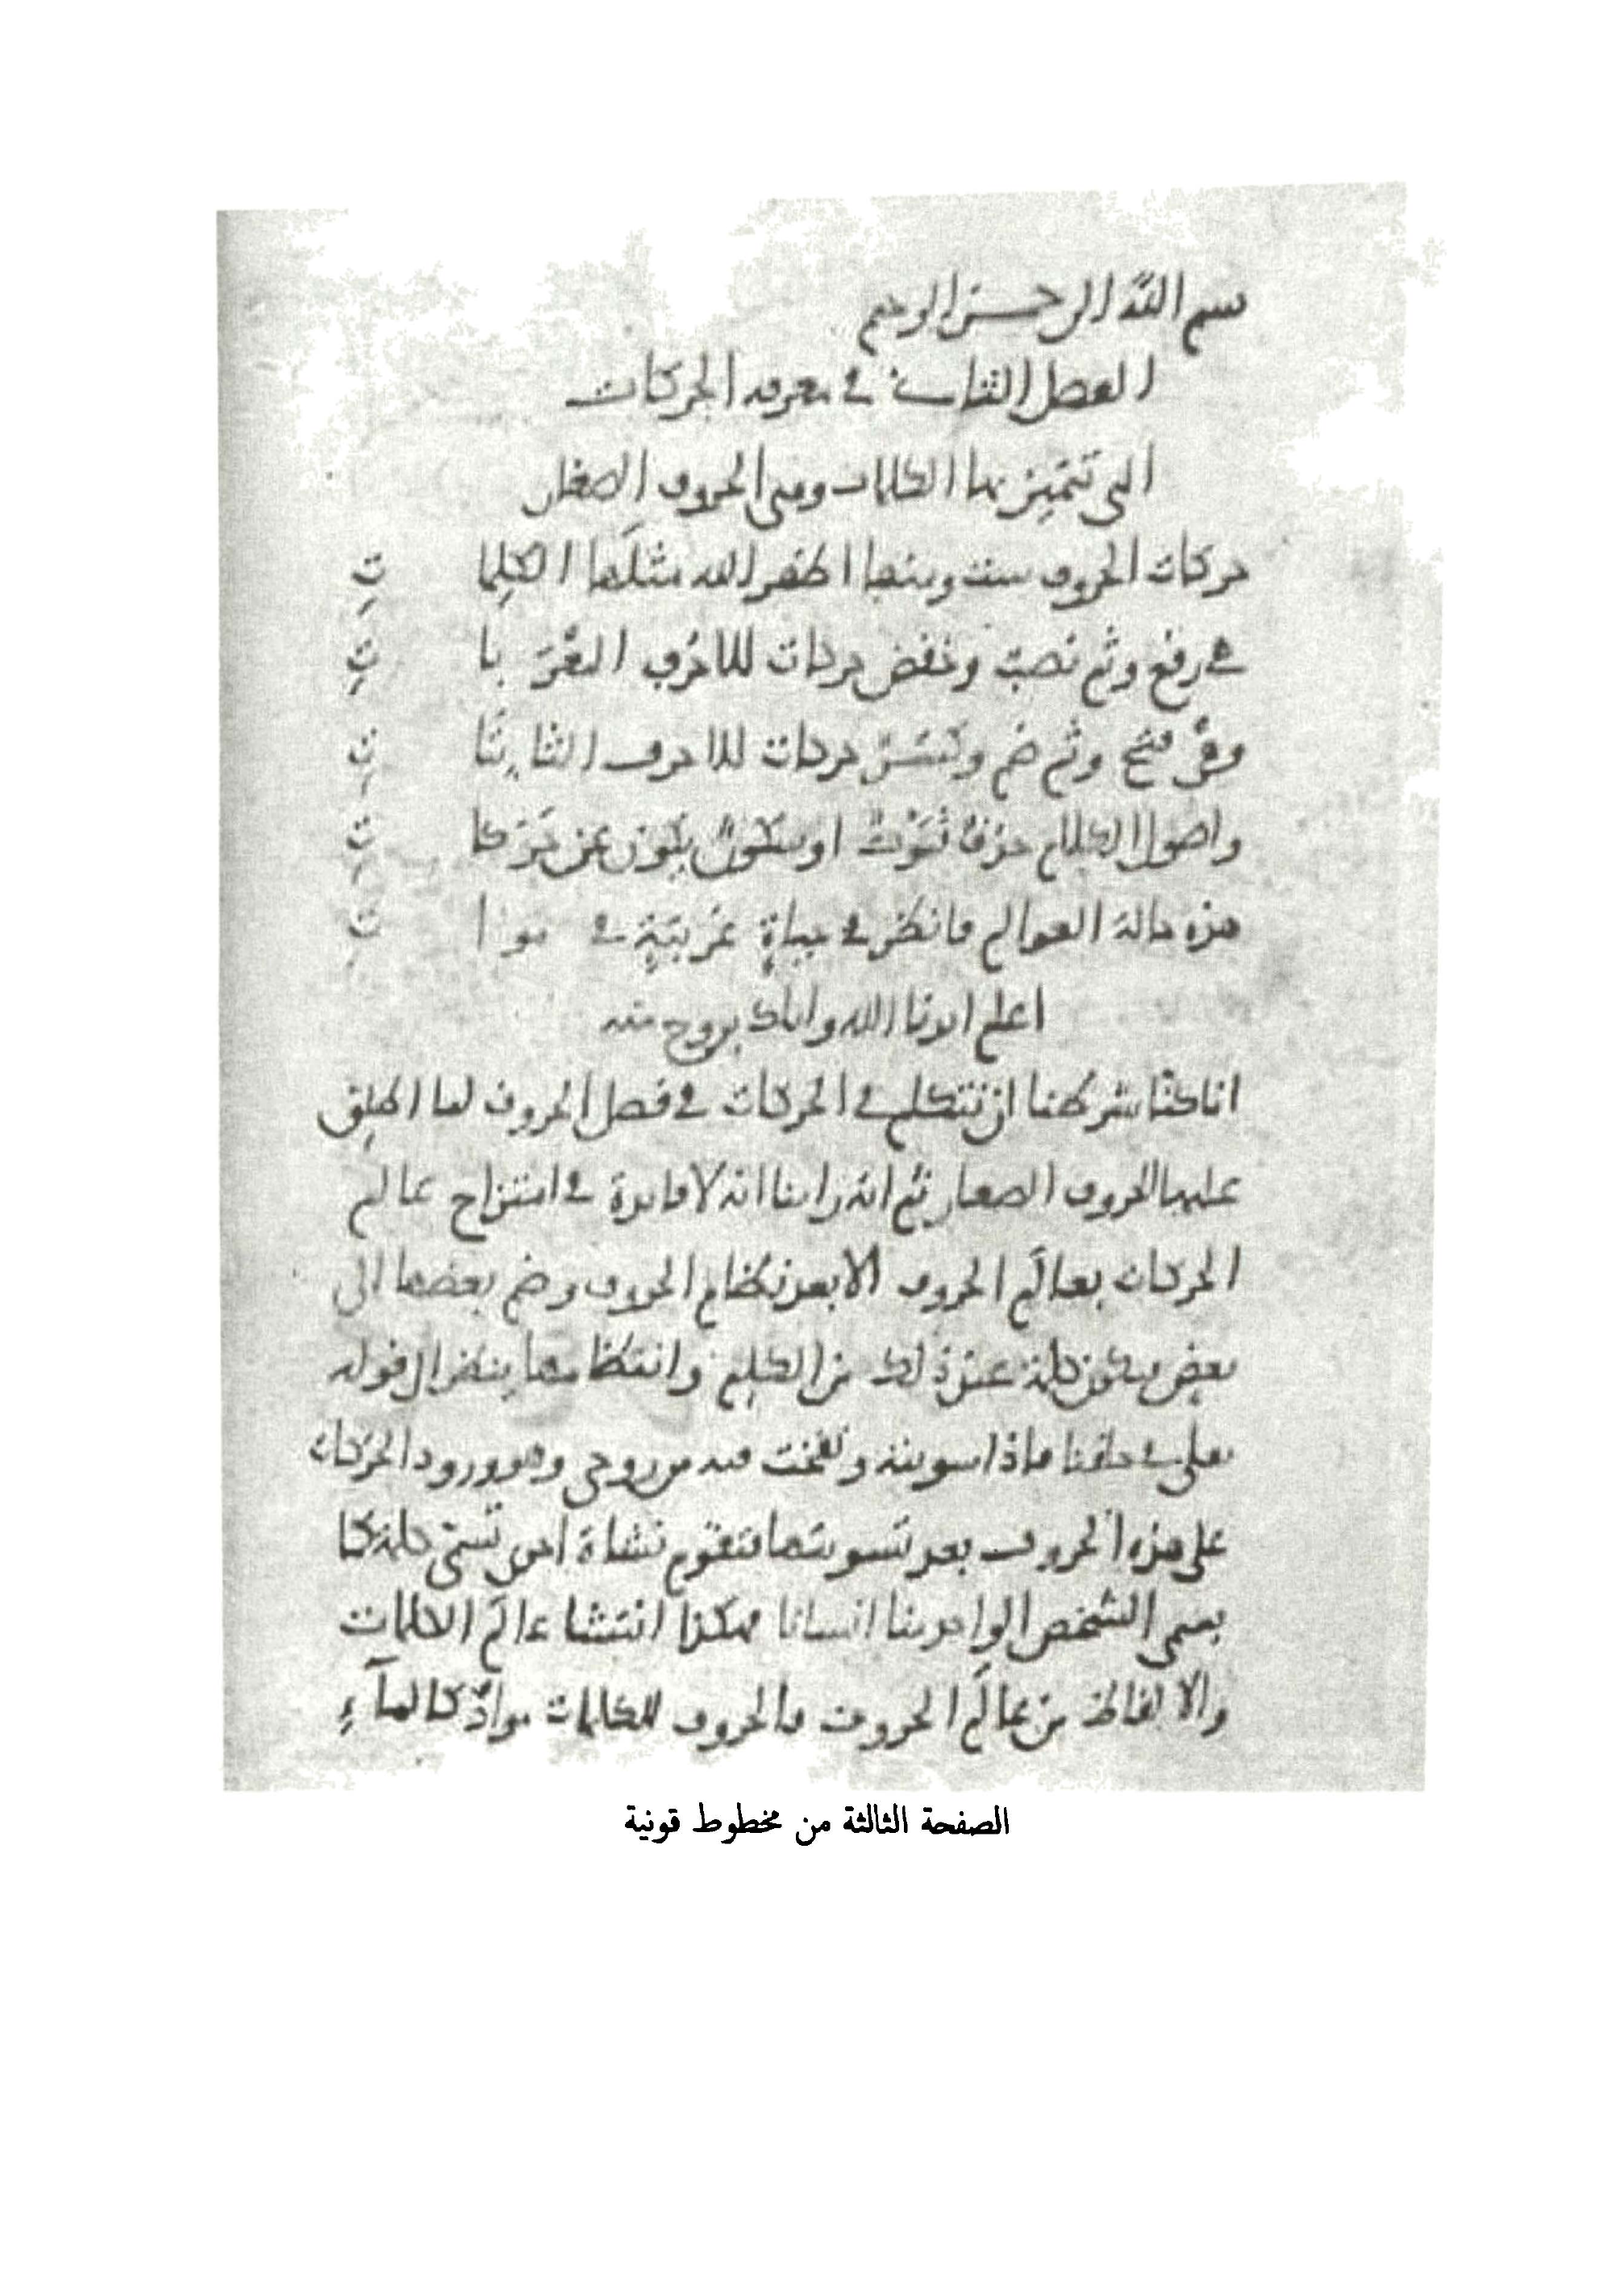 بسم الله الرحمن الرحيم
الفصل الثاني في معرفة الحركات
التي تتميز بها الكلمات وهي الحروف الصغار
حركات الحروف ست ومنها اظهر الله مثلها الكلما تِ
هي رفع وثم نصب وخفض حركات للاحرف المعربا تِ
وهي فتح وثم ضم وكسر حركات للاحرف الثابتا تِ
واصول الكلام حذف فموت او سكون يكون عن حركا تِ
هذه حالة العوالم فانظر في حياة غريبة في موا تِ
اعلم ايدنا الله واياك بروح منه
انا كنا شرطنا ان نتكلم في الحركات في فصل الحروف لما اطلق
عليها الحروف الصغار ثم انه راينا انه لا فايدة في امتزاج عالم
الحركات بعالم الحروف الا بعد نظام الحروف وضم بعضها الى
بعض فتكون كلمة عند ذلك من الكلم وانتظامها ينظر الى قوله
تعلى في خلقنا فاذا سويته ونفخت فيه من روحي وهو ورود الحركات
على هذه الحروف بعد تسويتها فتقوم نشاة اخرى تسمى كلمة كما
يسمى الشخص الواحد منا انسانا فهكذا انتشا عالم الكلمات
والالفاظ من عالم الحروف فالحروف للكلمات مواد كالمآء
الصفحة الثالثة من مخطوط قونية